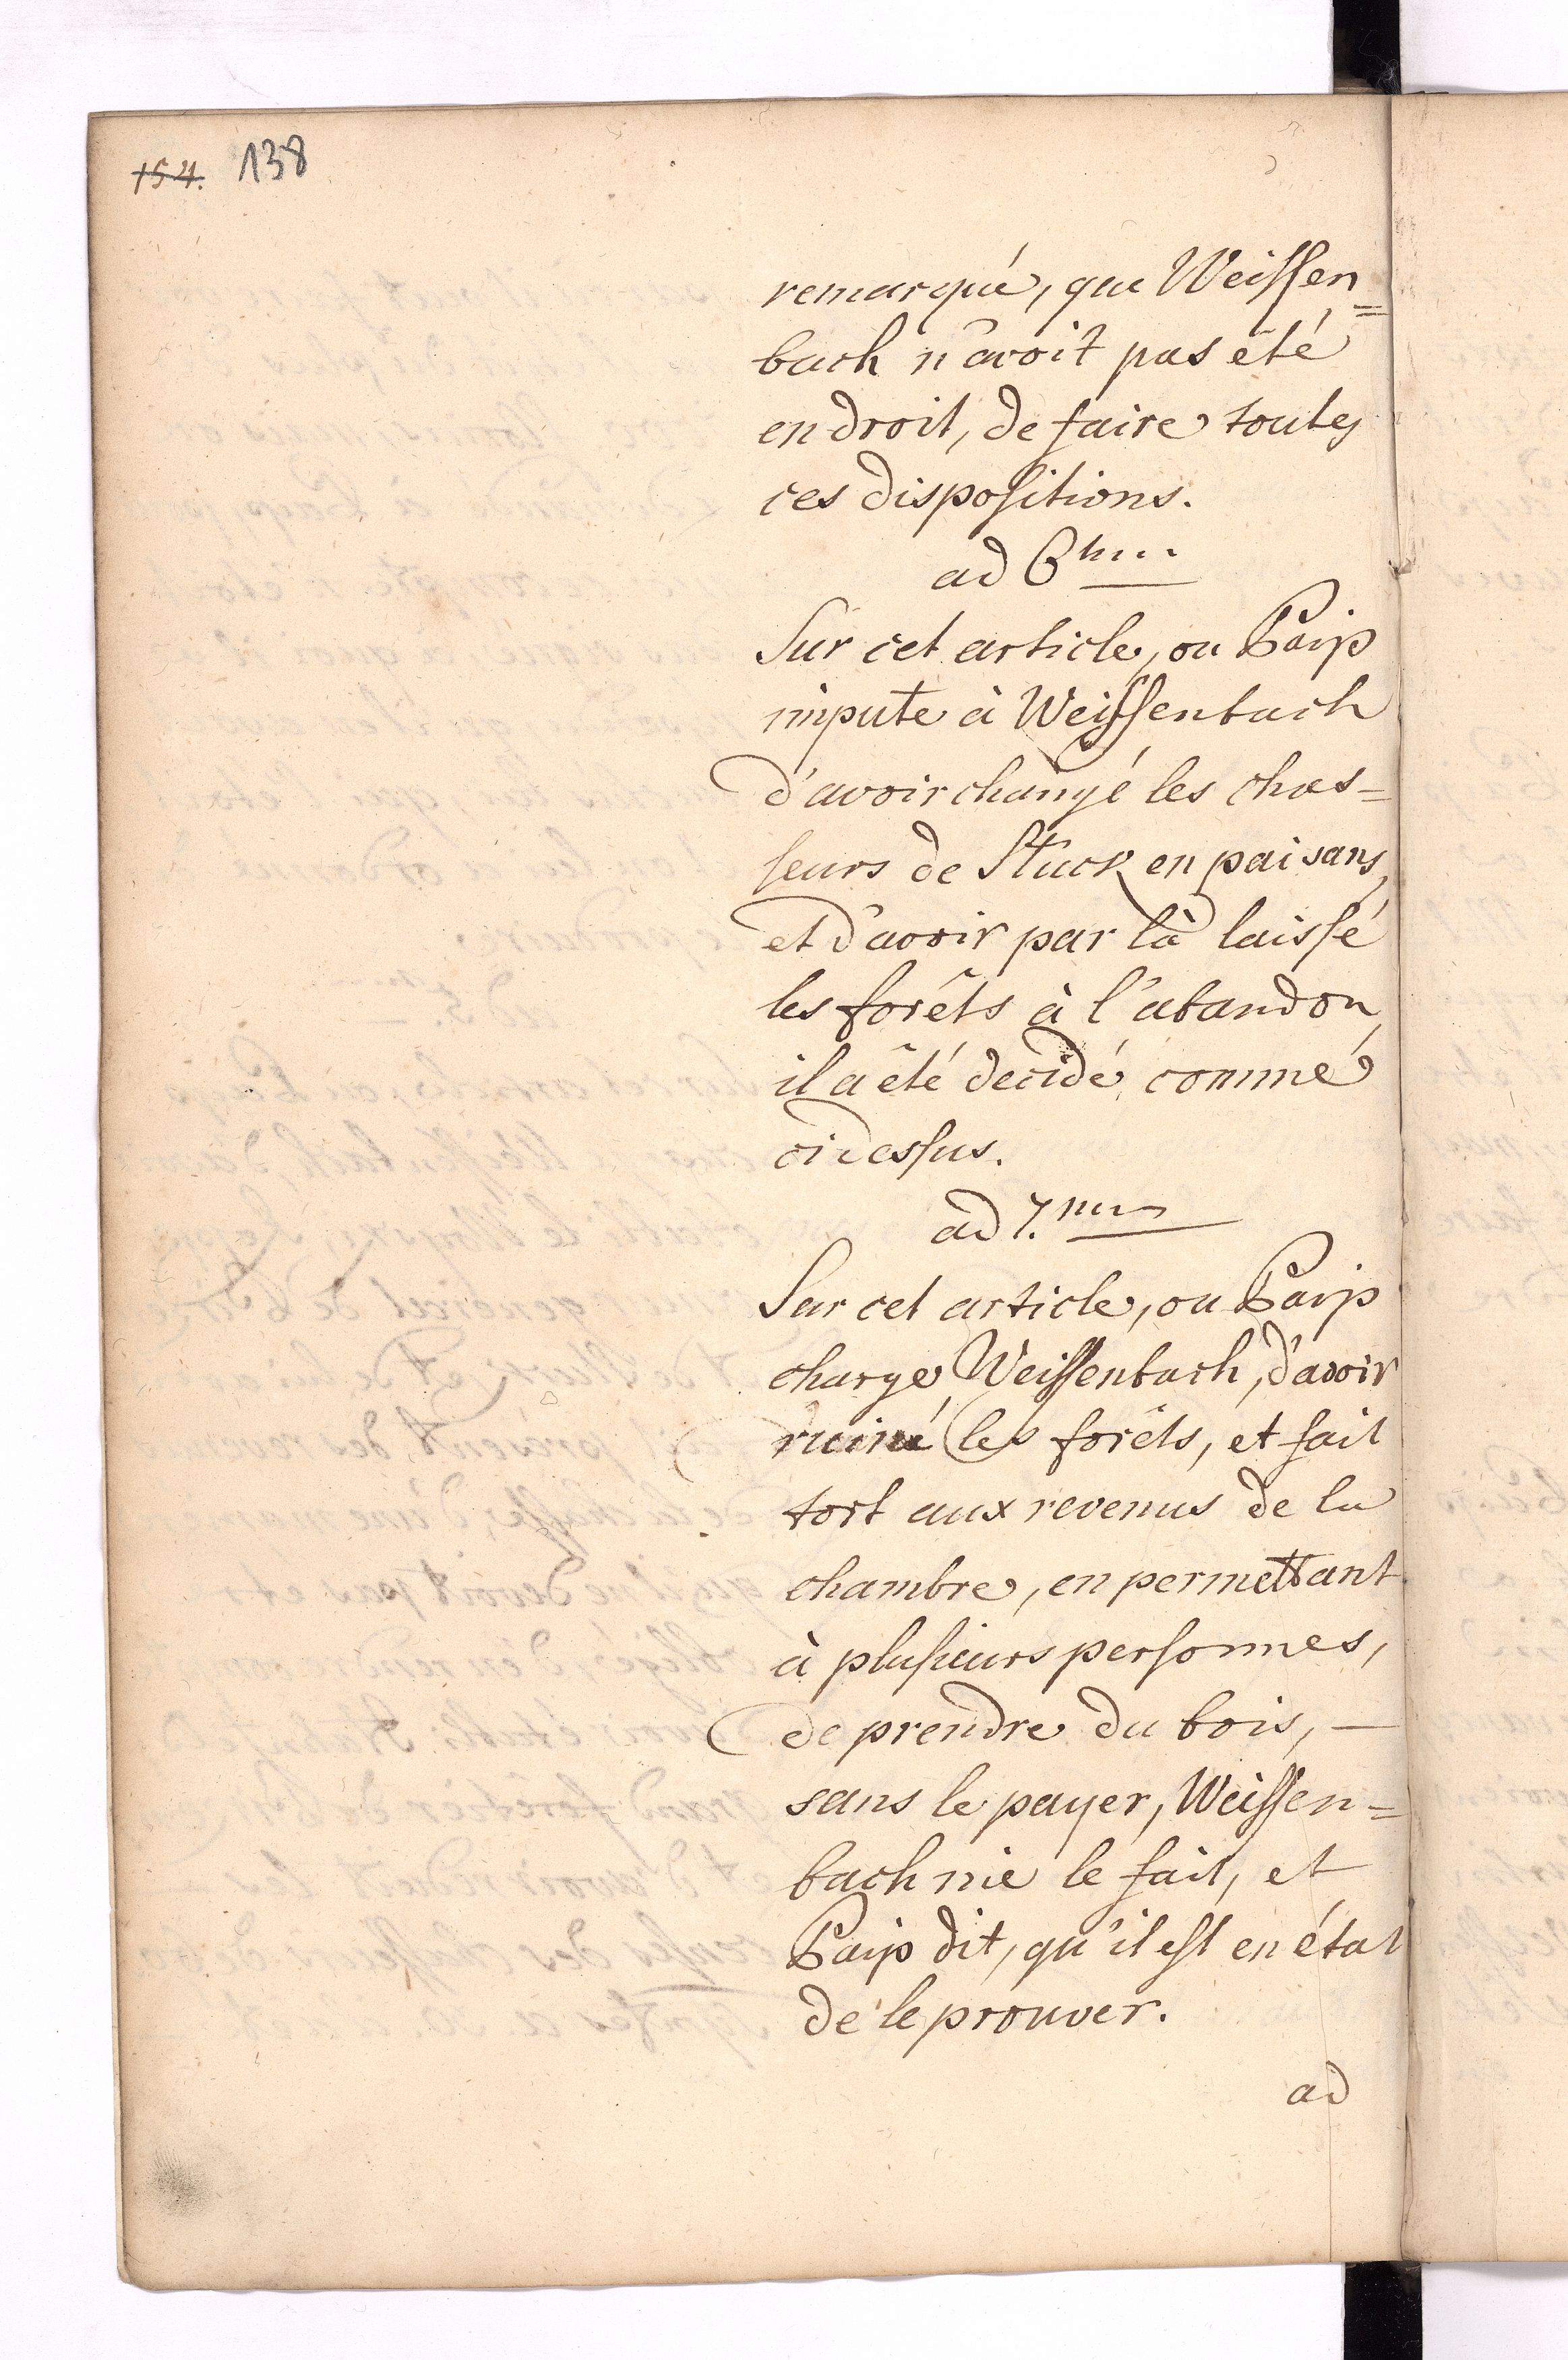 154. 138
remarqué, que Weissen=
bach n'avoit pas été
en droit, de faire toutes
ces dispositions.
ad 6tum
Sur cet article, ou Paip
impute à Weissenbach
d'avoir changé les chas=
seurs de Stuck en paisans,
et d'avoir par là laissé
les forêts à l'abandon,
il a été decidé, comme
cidessus.
ad 7.mum
Sur cet article, ou Paip
charge Weissenbach, d'avoir
ruiné les forêts, et fait
tort aux revenus de la
chambre, en permettant
à plusieurs personnes,
de prendre du bois, —
sans le payer, Weissen=
bach nie le fait, et
Paip dit, qu'il est en état
de le prouver.
ad